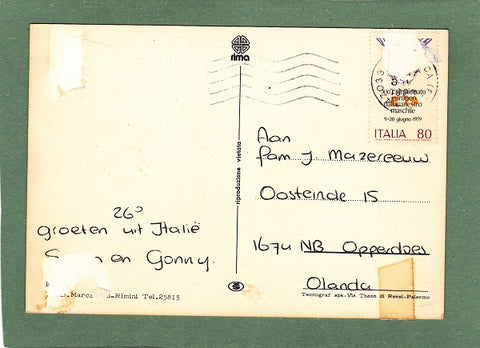 rima
7033
campionato
europeo
pallacanestro
maschile
9-20 giugno 1979
ITALIA 80
riproduzione vietata
Aan
fam J. Mazereeuw
Oosteinde 15
1674 NB Opperdoes
Olanda
26°
groeten uit Italië
en Gonny.
Marco Rimini Tel.25815
Tecnograf spa-Via Thaon di Revel-Palermo